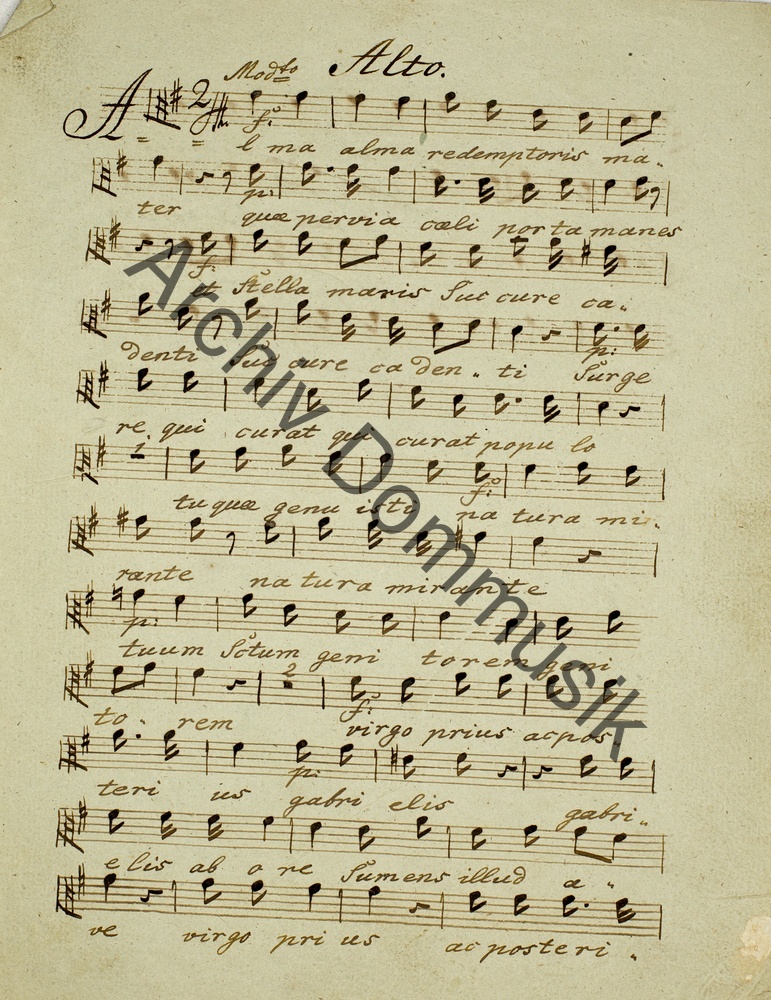 Alto.
Modto
A 2
f:
l ma alma redemptoris ma„
p:
ter quæ pervia cœli porta manes
f:
et Stella maris Succure ca„
p:
denti Succure caden„ti Surge
re qui curat qui curat populo
1.
f:
tu quæ genuisti natura mi„
rante natura mirante
p:
tuum Sctum geni torem geni
2
f:
to„ rem virgo prius ac pos„
p:
teri us gabri elis gabri„
elis ab o re Sumens illud a„
ve virgo prius ac posteri„
Archiv Dommusik